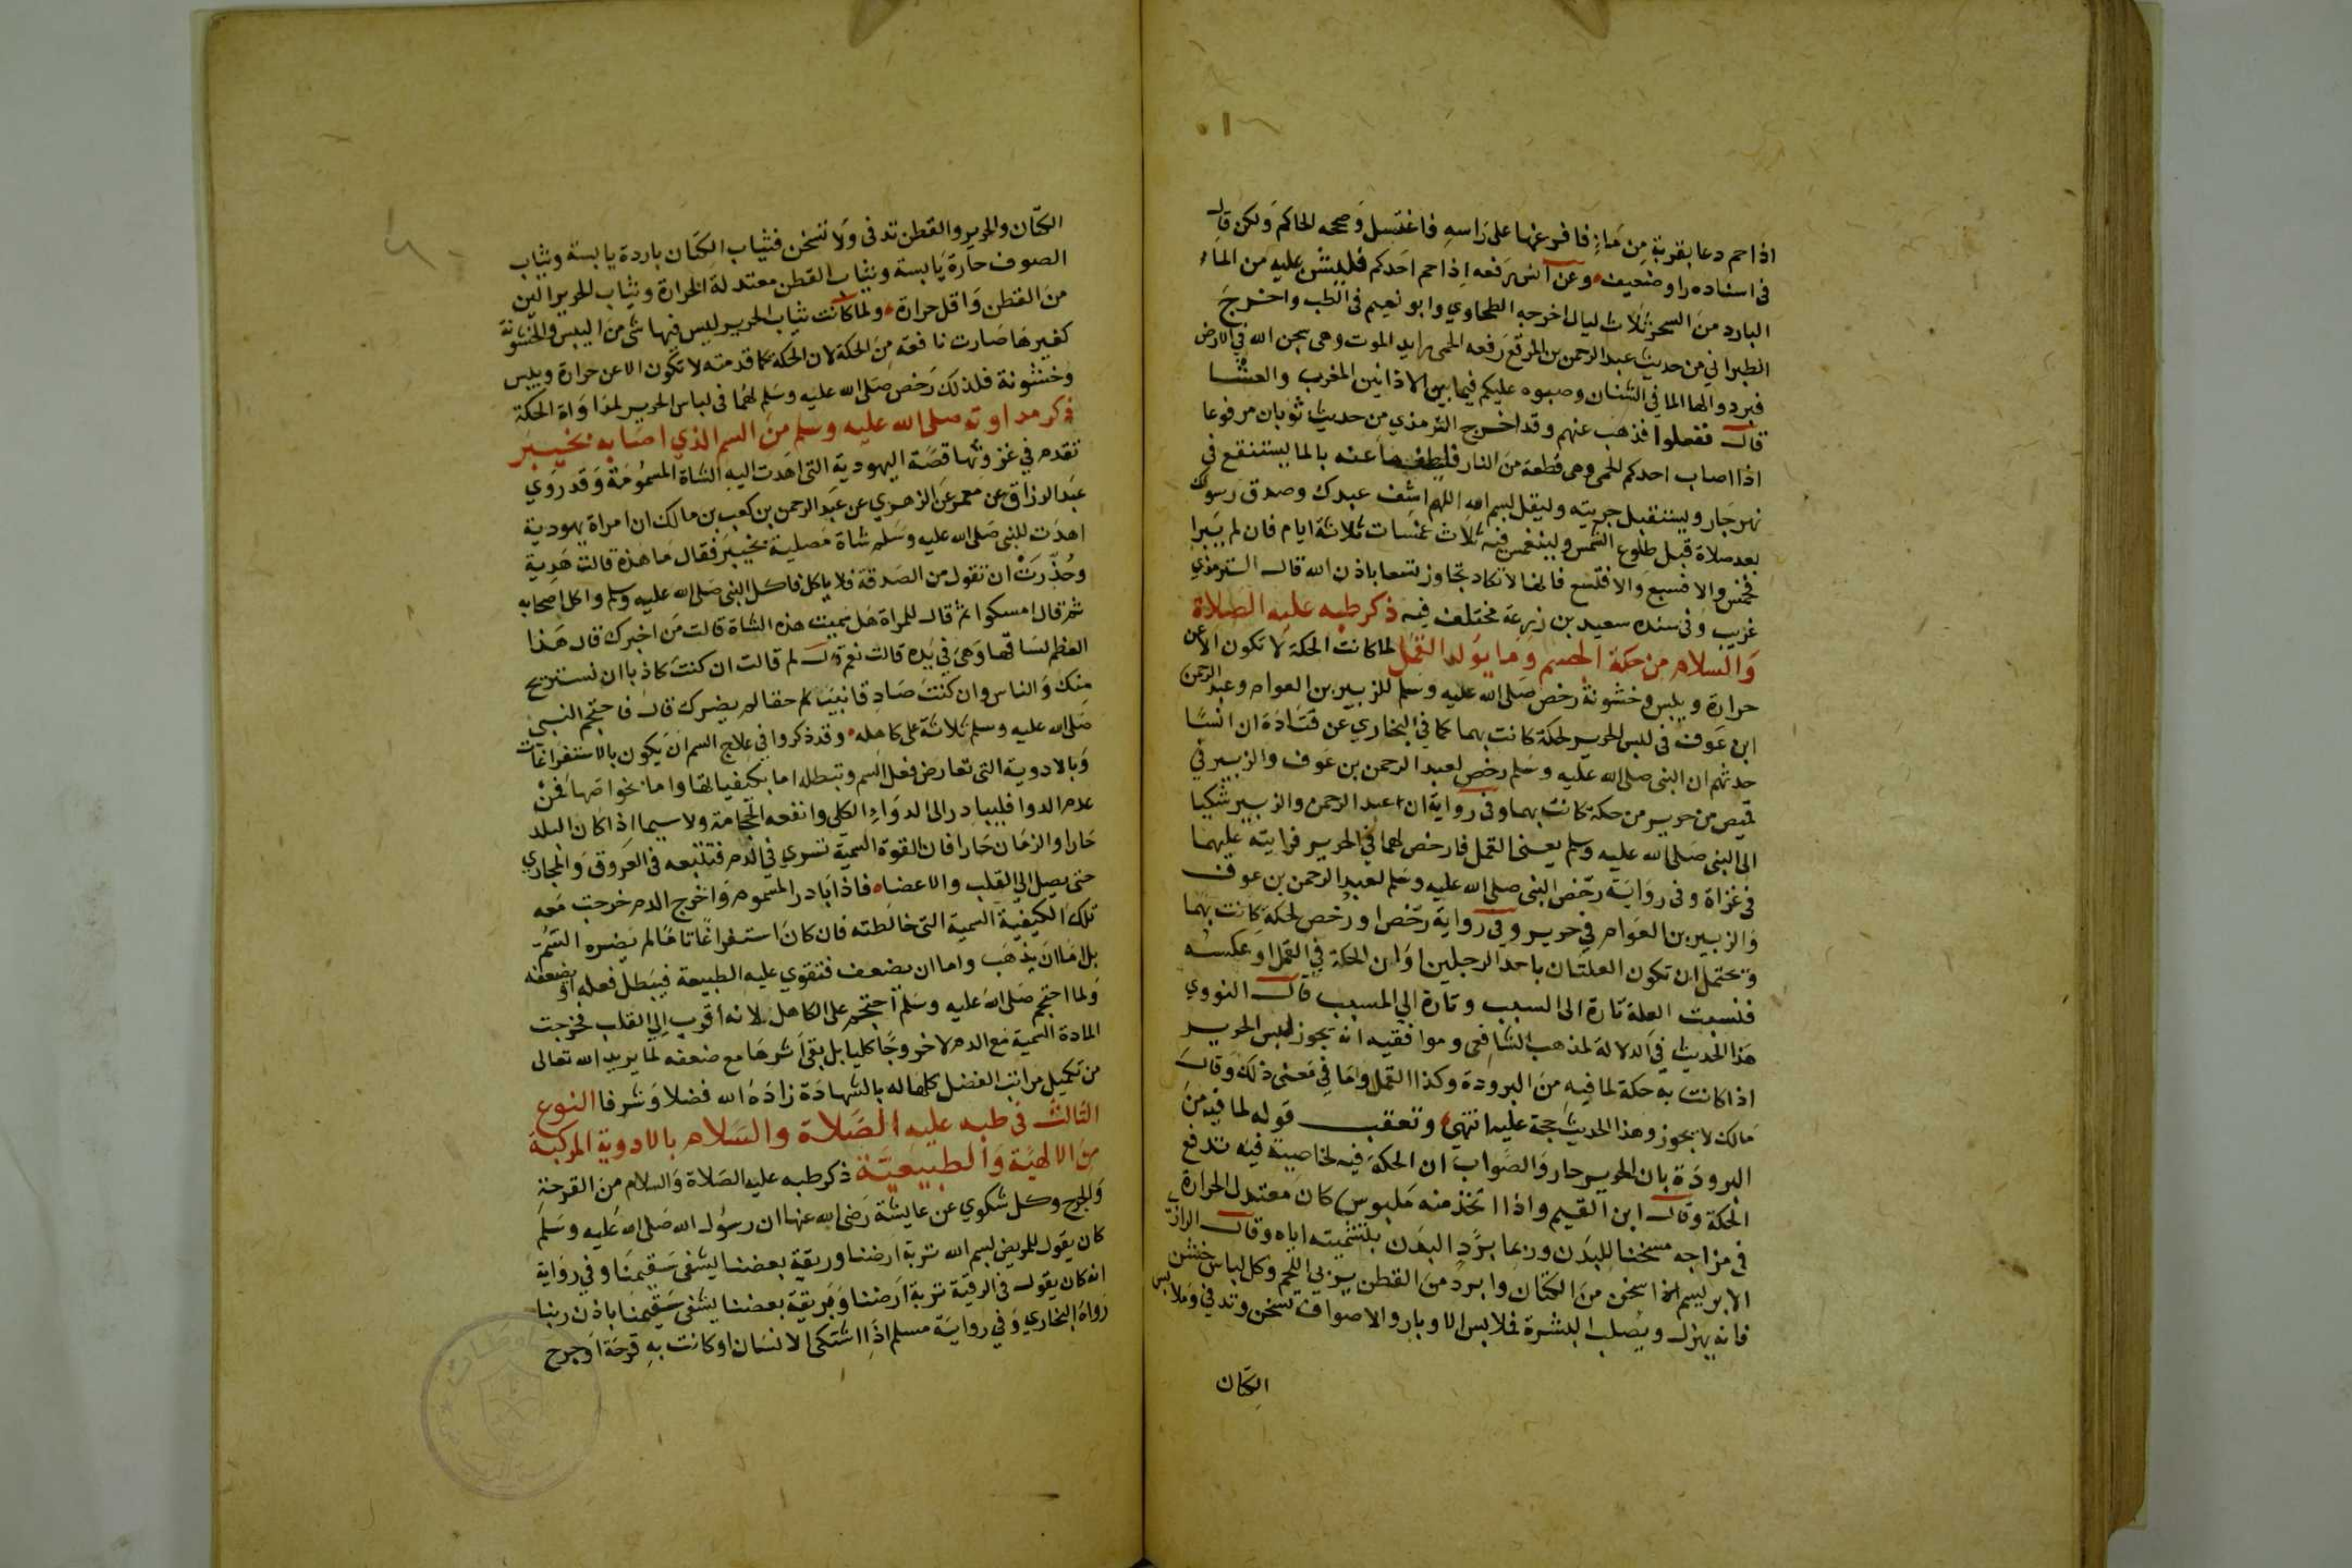 اذا حم دعا بقربة من ماء فافرغها على راسه فاغتسل وصححه الحاكم ولكن قال
في اسناده راو ضعيف وعن انس رفعه اذا حم احدكم فليشن عليه من الماء
البارد من السحر ثلاث ليال اخرجه الطحاوي وابو نعيم في الطب واخرج
الطبراني من حديث عبد الرحمن بن المرقع رفعه الحمى رايد الموت وهي سجن الله في الارض
فبردوا لها الما في الشنان وصبوه عليكم فيما بين الاذانين المغرب والعشا
قال ففعلوا فذهب عنهم وقد اخرج الترمذي من حديث ثوبان مرفوعا
اذا اصاب احدكم الحمى وهي قطعة من النار فليطفها عنه بالما يستنقع في
نهر جار وليستقبل جريته وليقل بسم الله اللهم اشف عبدك وصدق رسولك
بعد صلاة قبل طلوع الشمس ولينغمس فيه ثلاث غمسات ثلاثة ايام فان لم يبرا
فخمس والا فسبع والا فتسع فانها لا تكاد تجاوز تسعا باذن الله قال الترمذي
غريب وفي سنده سعيد بن زرعة مختلف فيه ذكر طبه عليه الصلاة
والسلام من حكة الجسم وما يولد القمل لما كانت الحكة لا تكون الا عن
حرارة ويبس وخشونة رخص صلى الله عليه وسلم للزبير بن العوام وعبد الرحمن
ابن عوف في لبس الحرير لحكة كانت بهما كما في البخاري عن قتادة ان انسا
حدثهم ان النبي صلى الله عليه وسلم رخص لعبد الرحمن بن عوف والزبير في
قميص من حرير من حكة كانت بهما وفي رواية ان عبد الرحمن والزبير شكيا
الى النبي صلى الله عليه وسلم يعني القمل فارخص لهما في الحرير فرايته عليهما
في غزاة وفي رواية رخص النبي صلى الله عليه وسلم لعبد الرحمن بن عوف
والزبير بن العوام في حرير وفي رواية رخص او رخص لحكة كانت بهما
ويحتمل ان تكون العلتان باحد الرجلين او ان الحكة في القمل او عكسه
فنسبت العلة تارة الى السبب وتارة الي المسبب قال النووي
هذا الحديث في الدلالة لمذهب الشافعي وموافقيه انه يجوز لبس الحرير
اذا كانت به حكة لما فيه من البرودة وكذا القمل وما في معنى ذلك وقال
مالك لا يجوز وهذا الحديث حجة عليه انتهى وتعقب قوله لما فيه من
البرودة بان الحرير حار والصواب ان الحكة فيه لخاصية فيه تدفع
الحكة وقال ابن القيم واذا اتخذ منه ملبوس كان معتدل الحرارة
في مزاجه مسخنا للبدن وربما برد البدن بتسمينه اياه وقال الرازي
الابريسم اسخن من الكتان وابرد من القطن يربي اللحم وكل لباس خشن
فانه يهزل ويصلب البشرة فملابس الاوبار والاصواف تسخن وتدفي وملابس
الكتان
الكتان والحرير والقطن تدفى ولا تسخن فثياب الكتان باردة يابسة وثياب
الصوف حارة يابسة وثياب القطن معتدلة الحرارة وثياب الحرير الين
من القطن واقل حرارة ولما كانت ثياب الحرير ليس فيها شى من اليبس والخشونة
كغيرها صارت نافعة من الحكة لان الحكة كما قدمته لا تكون الا عن حرارة ويبس
وخشونة فلذلك رخص صلى الله عليه وسلم لهما في لباس الحرير لمداواة الحكة
ذكر مداوته صلى الله عليه وسلم من السم الذي اصابه بخيبر
تقدم في غزوتها قصة اليهودية التي اهدت اليه الشاة المسمومة وقد روي
عبد الرزاق عن معمر عن الزهري عن عبد الرحمن بن كعب بن مالك ان امراة يهودية
اهدت للنبي صلى الله عليه وسلم شاة مصلية بخيبر فقال ما هذه قالت هدية
وحذرت ان تقول من الصدقة فلا ياكل فاكل النبي صلى الله عليه وسلم واكل اصحابه
ثم قال امسكوا ثم قال للمراة هل سميت هذه الشاة قالت من اخبرك قال هذا
العظم لساقها وهي في يده قالت نعم قال لم قالت ان كنت كاذبا ان نستريح
منك والناس وان كنت صادقا نبيا لم يضرك قال فاحتجم النبي
صلى الله عليه وسلم ثلاثة على كاهله وقد ذكروا في علاج السم ان يكون بالاستفراغات
وبالادوية التي تعارض فعل السم وتبطله اما بكيفياتها واما بخواصها فمن
عدم الدوا فليبادر الى الدواء الكلي وانفعه الحجامة ولا سيما اذا كان البلد
حارا والزمان حارا فان القوة السمية تسري في الدم فتتبعه في العروق والمجاري
حتى يصل الي القلب والاعضاء فاذا بادر المسموم واخرج الدم خرجت معه
تلك الكيفية السمية التي خالطته فان كان استفراغا تاما لم يضره السم
بل اما ان يذهب واما ان يضعف فتقوي عليه الطبيعة فيبطل فعله او يضعفه
ولما احتجم صلى الله عليه وسلم احتجم على الكاهل لانه اقرب الي القلب فخرجت
المادة السمية مع الدم لا خروجا كليا بل بقى اثرها مع ضعفه لما يريد الله تعالى
من تكميل مراتب الفضل كلها له بالشهادة زاده الله فضلا وشرفا النوع
الثالث في طبه عليه الصلاة والسلام بالادوية المركبة
من الالهية والطبيعية ذكر طبه عليه الصلاة والسلام من القرحة
والجرح وكل شكوي عن عايشة رضى الله عنها ان رسول الله صلى الله عليه وسلم
كان يقول للمريض بسم الله تربة ارضنا وريقة بعضنا يشفى سقيمنا وفي رواية
انه كان يقول في الرقية تربة ارضنا وريقة بعضنا يشفى سقيمنا باذن ربنا
رواه البخاري وفي رواية مسلم اذا اشتكى الانسان او كانت به قرحة او جرح